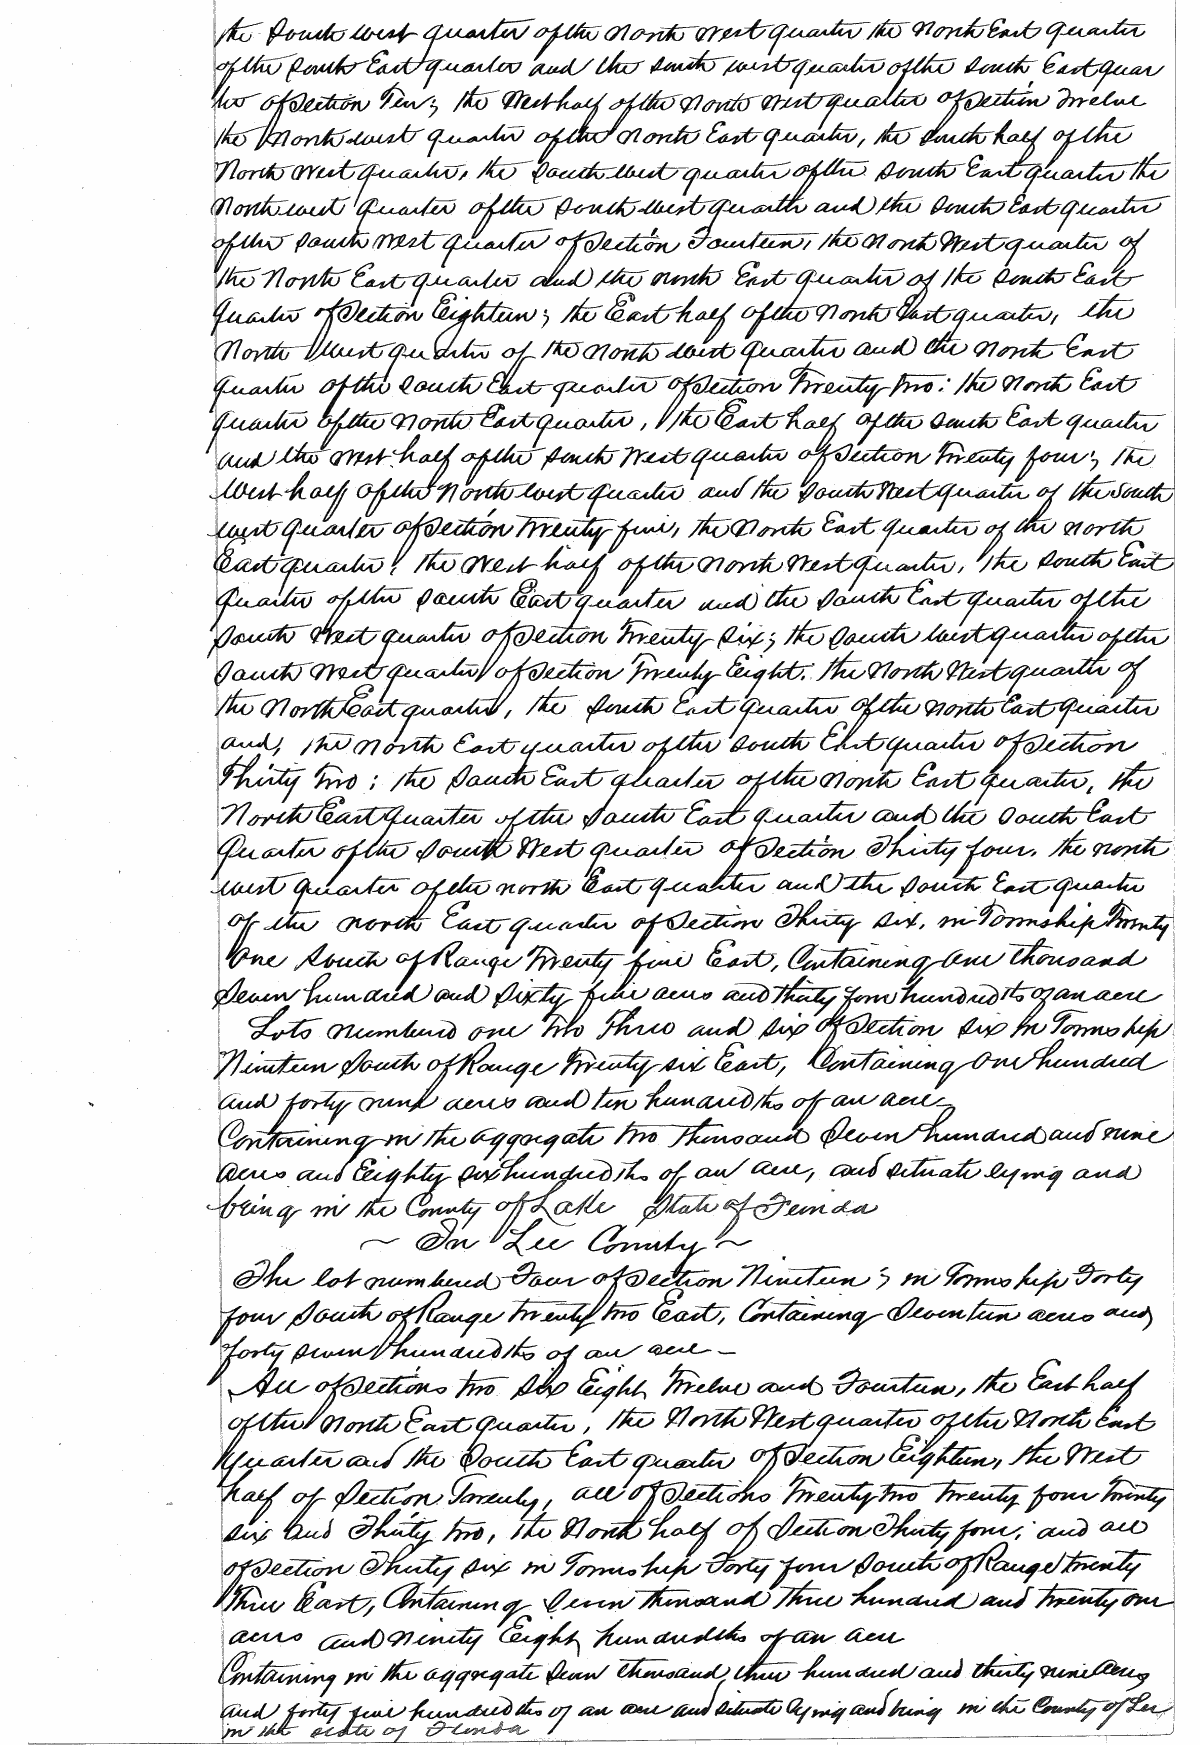 the South west quarter of the North West quarter the North East quarter
of the South East quarter and the south west quarter of the South East quar
ter of Section Ten; the West half of the North West quarter of Section Twelve
the North west quarter of the North East quarter, the South half of the
North West quarter, the South west quarter of the South East quarter the
North west quarter of the South west quarter and the South East quarter
of the South West quarter of Section Fourteen, the North West quarter of
the North East quarter and the north East quarter of the South East
Quarter of Section Eighteen; the East half of the North East quarter, the
North West quarter of the North West quarter and the North East
quarter of the South East quarter of Section Twenty two: the North East
quarter of the North East quarter, the East half of the South East quarter
and the West half of the South West quarter of Section Twenty four; the
West half of the North west quarter and the South West quarter of the South
west quarter of Section Twenty five, the North East quarter of the north
East quarter, the West half of the North West quarter, the South East
Quarter of the South East quarter and the South East quarter of the
South West quarter of Section Twenty Six; the South West quarter of the
South West quarter of Section Twenty Eight, the North West quarter of
the North East quarter, the South East Quarter of the North East Quarter
and, the North East quarter of the South East quarter of Section
Thirty Two; the South East quarter of the North East quarter, the
North East Quarter of the South East quarter and the South East
Quarter of the South West quarter of Section Thirty four. the north
west quarter of the north East quarter and the South East quarter
of the north East quarter of Section Thirty Six, in Township Twenty
One South of Range Twenty five East, Containing One thousand
Seven hundred and Sixty five acres and thirty four hundredths of an acre
Lots numbered one Two Three and six of Section six in Township
Nineteen South of Range Twenty six East, Containing One hundred
and forty nine acres and ten hundredths of an acre
Containing in the aggregate two thousand Seven hundred and nine
acres and Eighty six hundredths of an acre, and situate lying and
being in the County of Lake State of Florida
~ In Lee County ~
The lot numbered Four of Section Nineteen; in Township Forty
four South of Range twenty two East, Containing Seventeen acres and
forty seven hundredths of an acre –
All of Sections two Six Eight Twelve and Fourteen, the East half
of the North East quarter, the North West quarter of the North East
Quarter and the South East quarter of Section Eighteen, the West
half of Section Twenty, all of Sections Twenty two twenty four Twenty
six and Thirty two, the North half of Section Thirty four; and all
of Section Thirty six in Township Forty four South of Range twenty
Three East, Containing Seven thousand three hundred and twenty one
acres and Ninety Eight hundredths of an acre
Containing in the aggregate Seven thousand three hundred and thirty nine acres
and forty five hundredths of an acre and situate lying and being in the County of Lee
in the state of Florida